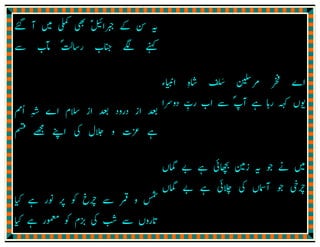 یہ سن کے جبرائیلؑ بھی کملی میں آ گئے
کہنے لگے جناب رسالتؐ مآب سے
اے فخر مرسلین سلف شاہ انبیاء
یوں کہہ رہا ہے آپؐ سے اب ربِ دوسرا
بعد از درود بعد از سلام اے شہِ اُمم
ہے عزت و جلال کی اپنے مجھے قسم
میں نے جو یہ زمین بچھائی ہے بے گماں
چرخی جو آسماں کی چلائی ہے بے گماں
شمس و قمر سے چرخ کو پر نور ہے کیا
تاروں سے شب کی بزم کو معمور ہے کیا